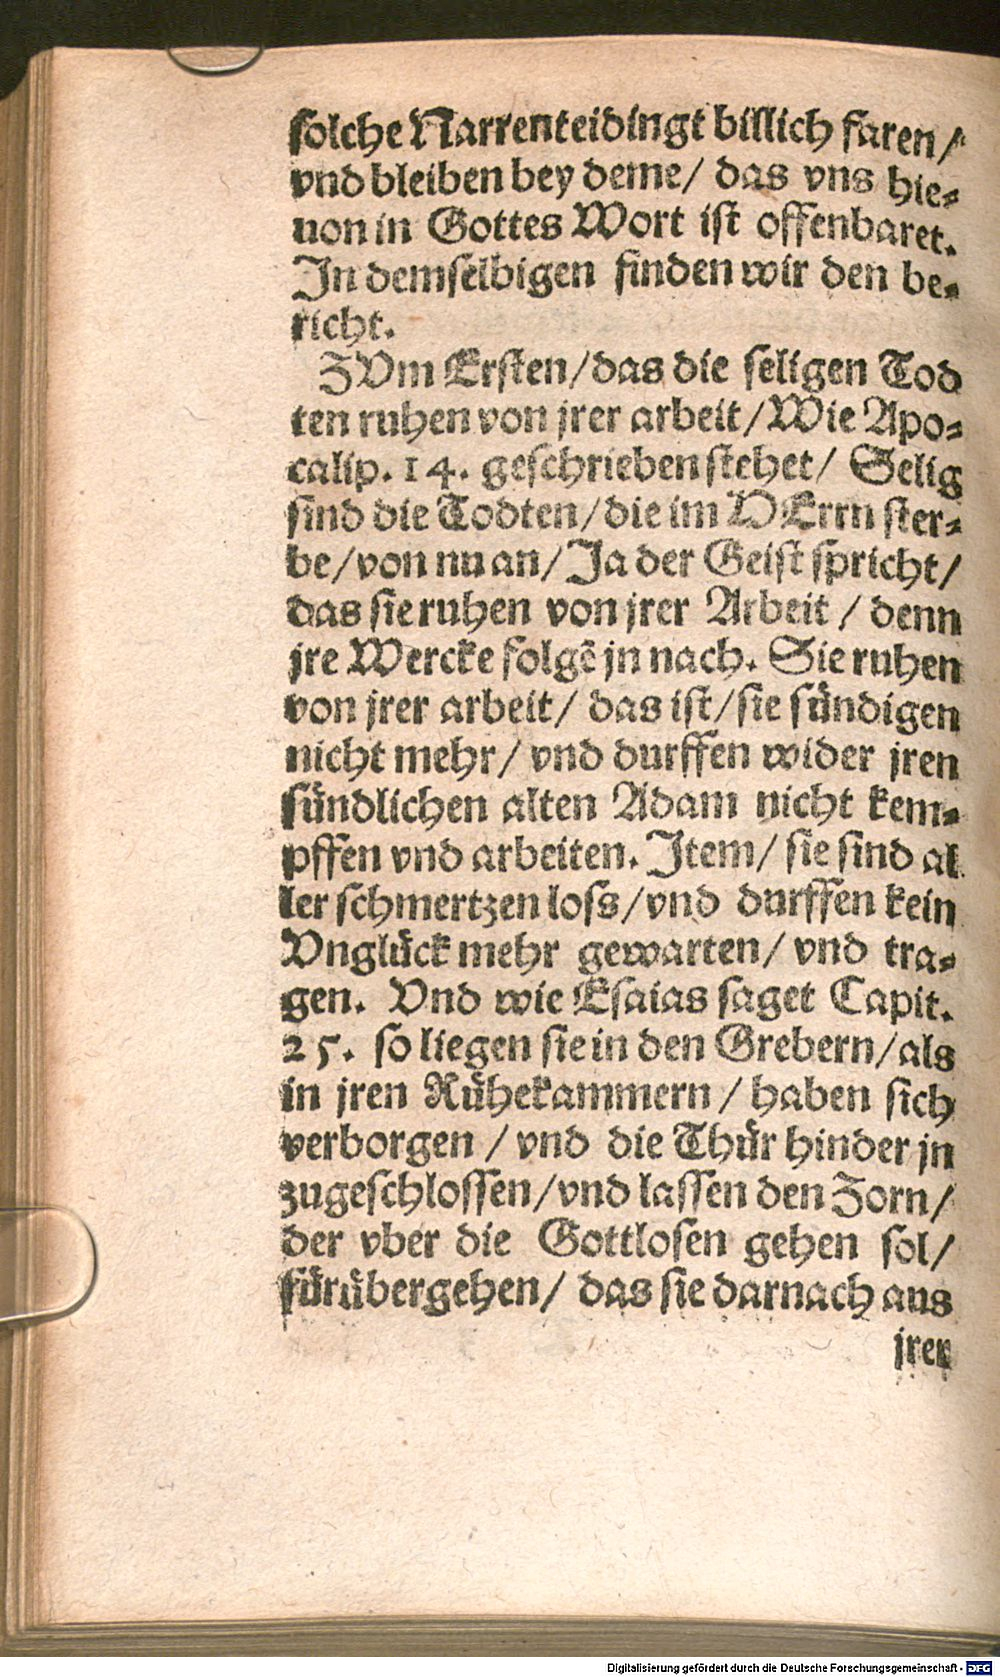 solche Narrenteidingt billich faren/
vnd bleiben bey deme/ das vns hie-
uon in Gottes Wort ist offenbaret.
In demselbigen finden wir den be-
richt.
ZVm Ersten/das die seligen Tod
ten ruhen von jrer arbeit/Wie Apo-
calip. 14. geschrieben stehet/ Selig
sind die Todten/die im HErrn ster-
be/von nu an/Ja der Geist spricht/
das sie ruhen von jrer Arbeit / denn
jre Wercke folgẽ jn nach. Sie ruhen
von jrer arbeit/ das ist/sie sündigen
nicht mehr/ vnd durffen wider jren
sündlichen alten Adam nicht kem-
pffen vnd arbeiten. Item/ sie sind al
ler schmertzen loss/vnd durffen kein
Vnglück mehr gewarten/ vnd tra-
gen. Vnd wie Esaias saget Capit.
25. so liegen sie in den Grebern/als
in jren Rühekammern / haben sich
verborgen / vnd die Thür hinder jn
zugeschlossen/vnd lassen den Zorn/
der vber die Gottlosen gehen sol/
fürübergehen/ das sie darnach aus
jrer
Digitalisierung gefördert durch die Deutsche Forschungsgemeinschaft - DFG